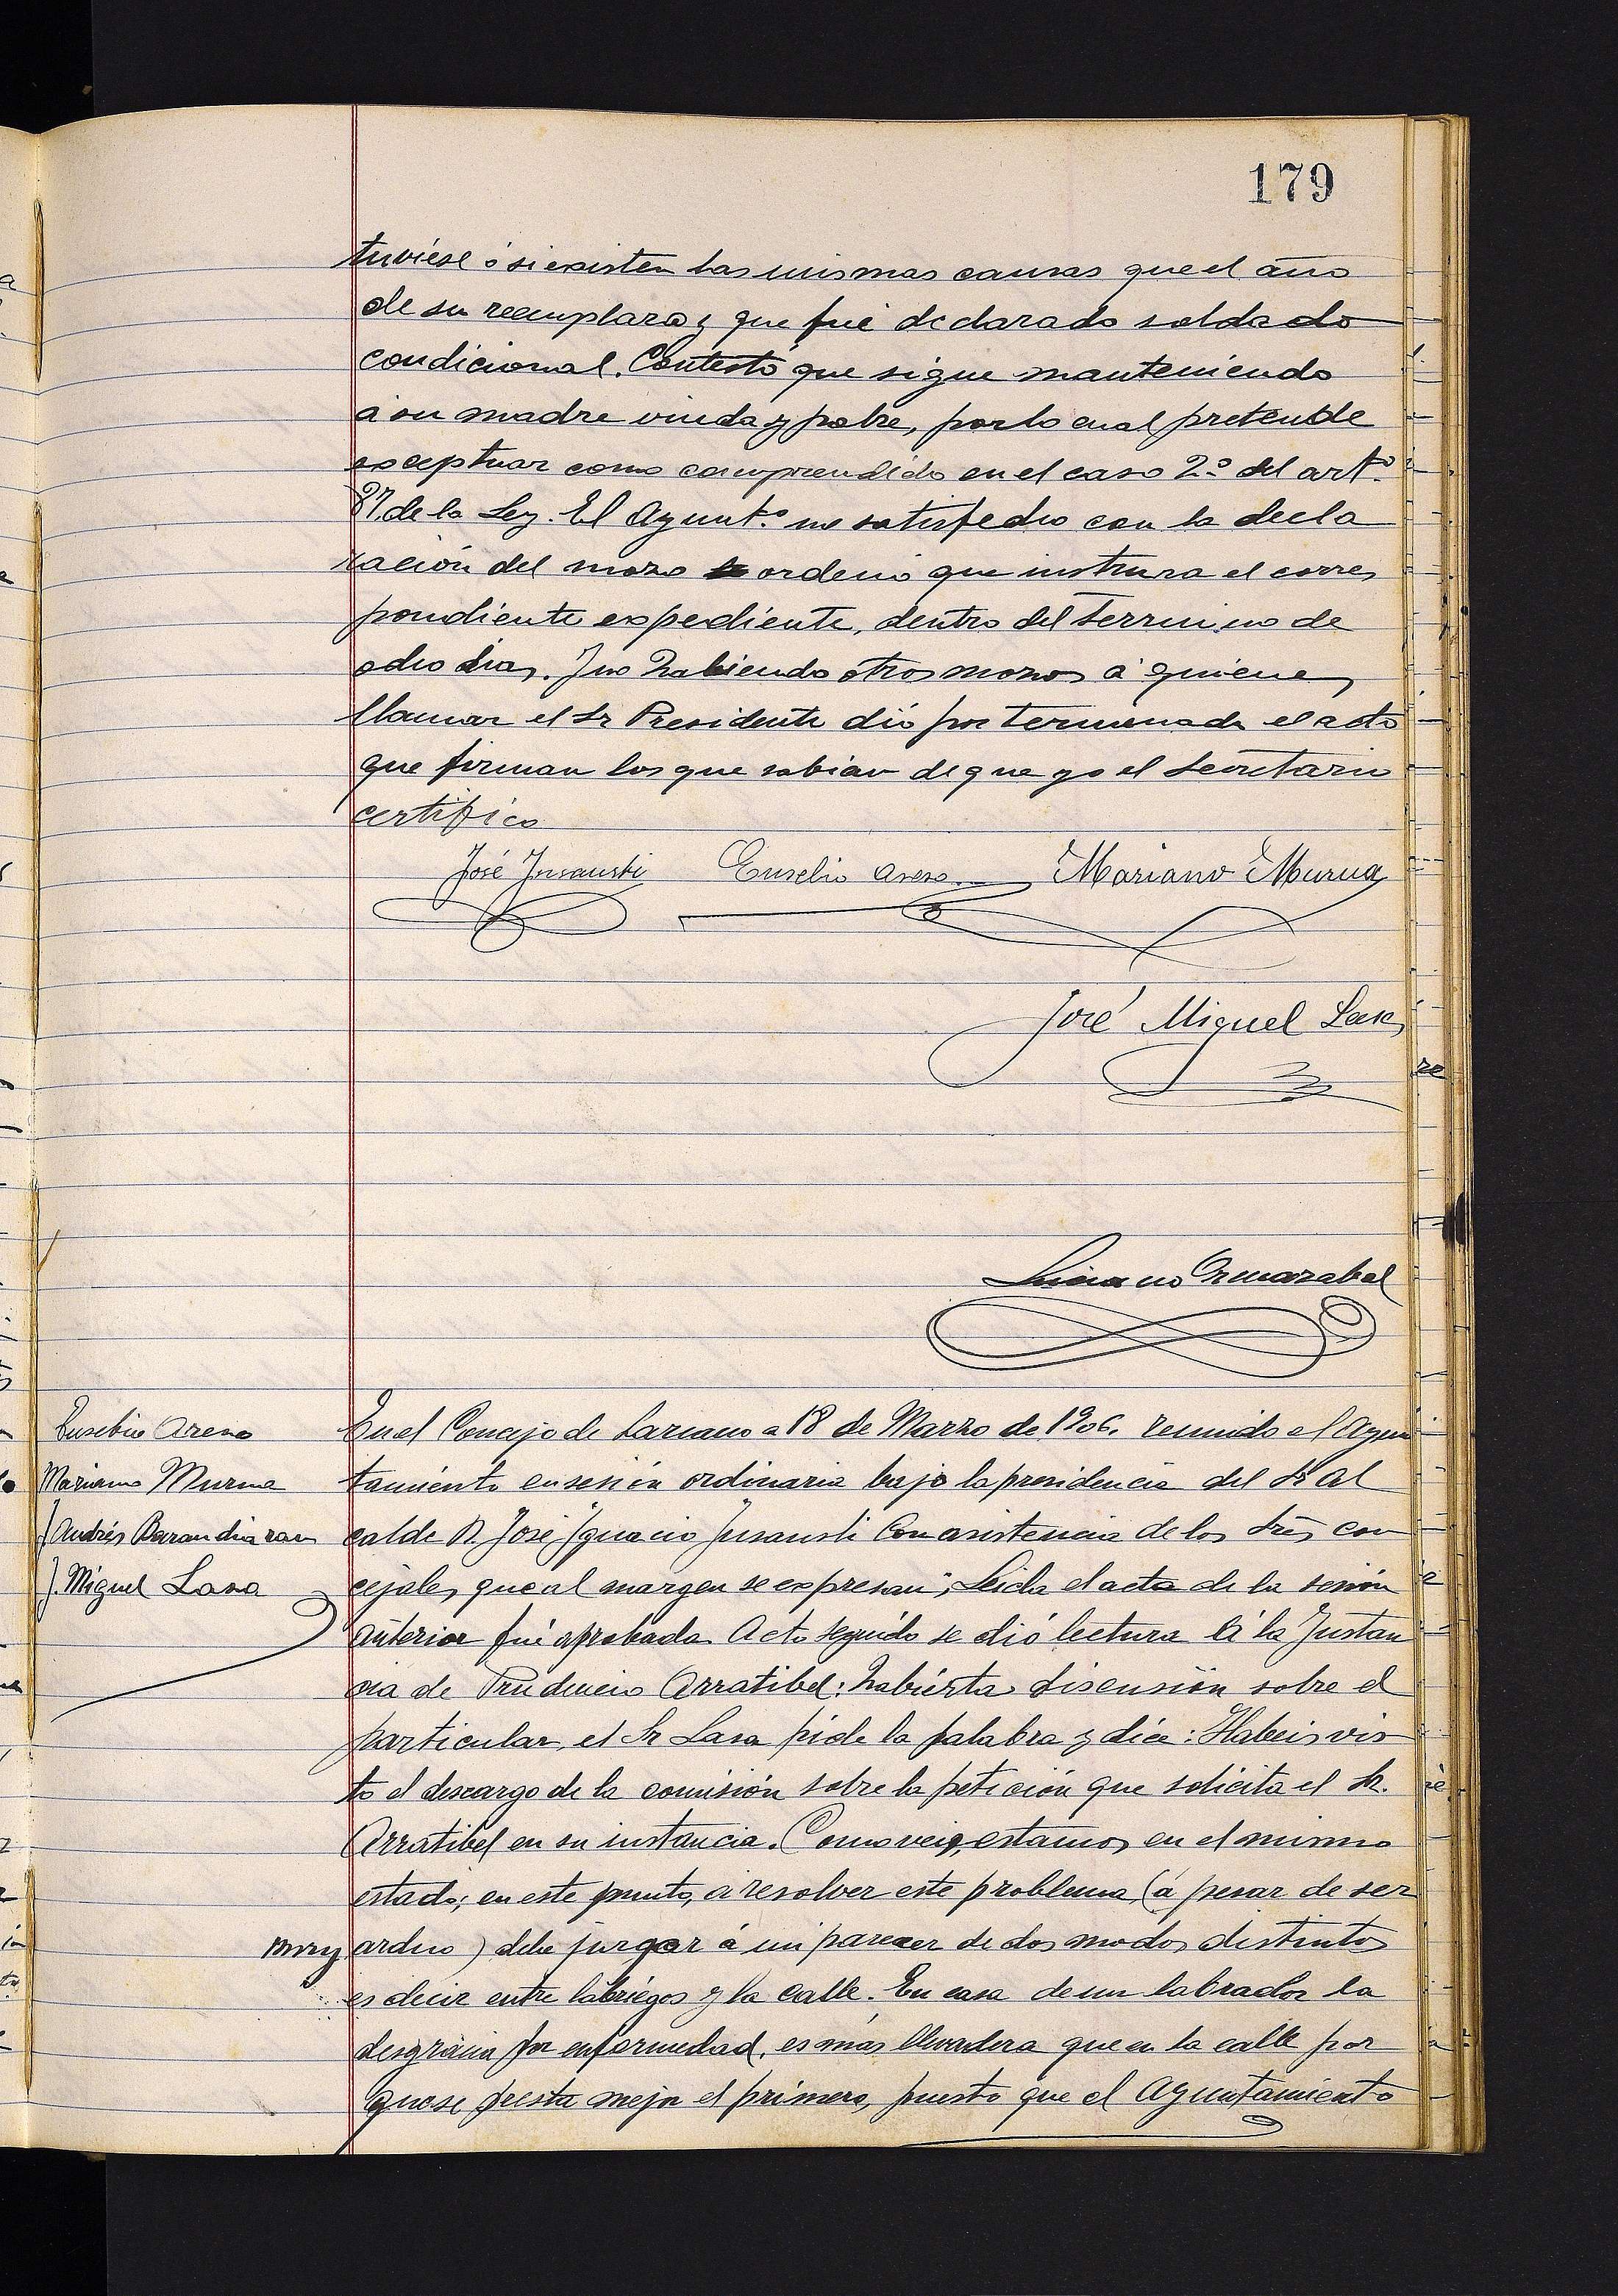 179
tuviese ó si existen las mismas causas que el año
de su reemplazo y que fué declarado soldado
condicional. Contestó que sigue manteniendo
á su madre viuda y pobre, por lo cual pretende
exceptuar como comprendido en el caso 2.º del art.º
87 de la Ley. El Ayunt.º no satisfecho con la decla
ración del mozo ordenó que instruya el corres
pondiente expediente, dentro del termino de
ocho dias. Y no habiendo otros mozos á quienes
llamar el Sr Presidente dió por terminada el acto
que firman los que sabian de que yo el Secretario
certifico
José Insausti Eusebio Aseso Mariano Murua
José Miguel Lasa
Ormazabal
Eusebio Aseso
Mariano Murua
J. Andrés Barandiaran
J. Miguel Lasa
En el Concejo de Lazcano a 18 de Marzo de 1906. reunido el Ayun
tamiento en sesión ordinaria bajo la presidencia del Sr Al
calde D. José Ygnacio Insausti con asistencia de los Sres con
cejales que al margen se expresan, Leida el acta de la sesión
anterior fué aprobada Acto seguido se dió lectura á la Instan
cia de Prudencio Arratibel: habierta discusión sobre el
particular, el Sr Lasa pide la palabra y dice: Habeis vis
to el descargo de la comisión sobre la petición que solicita el Sr.
Arratibel en su instancia. Como veis, estamos en el mismo
estado; en este punto, a resolver este problema (á pesar de ser
muy arduo) debe juzgar á mi parecer de dos modos distintos
es decir entre labriegos y la calle. En casa de un labrador la
desgracia por enfermedad, es mas llevadera que en la calle por
que se presta mejor el primero, puesto que el Ayuntamiento